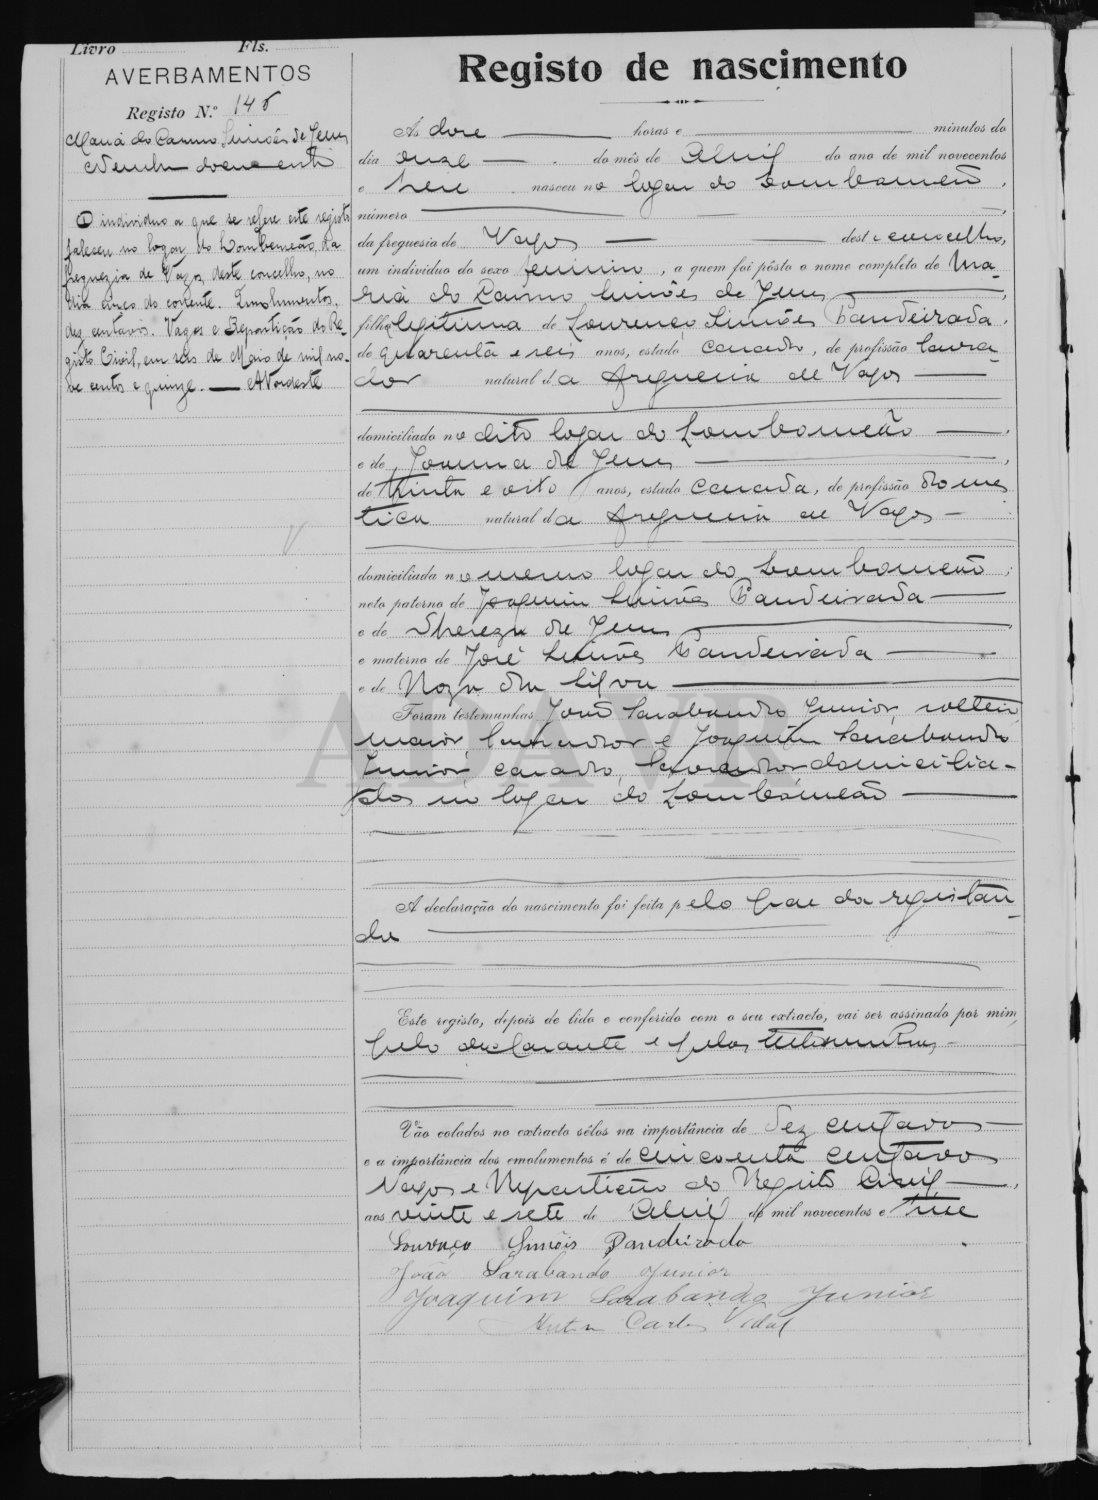 Livro Fls.
AVERBAMENTOS
Registo N.º 145
Maria do Carmo Simões de Jesus
Nenhum documento
O individuo a que se refere este registo
faleceu no logar do Lombomeão, da
freguezia de Vagos, deste concelho, no
dia cinco do corrente. Emolumentos,
dez centavos. Vagos e Repartição do Re-
gisto Civil, em seis de Maio de mil no-
ve centos e quinze. — A Nordeste
Registo de nascimento
Ás doze horas e minutos do
dia onze do mês de Abril do ano de mil novecentos
e treze nasceu no logar do Lombomeão,
número
da freguesia de Vagos deste concelho,
um individuo do sexo feminino, a quem foi pôsto o nome completo de Ma-
ria do Carmo Simões de Jesus,
filha legitima de Lourenço Simões Pandeirada,
de quarenta e seis anos, estado casado, de profissão lavra-
dor natural da freguesia de Vagos
domiciliado no dito logar do Lombomeão,
e de Joanna de Jesus,
de trinta e oito anos, estado casada, de profissão domes
tica natural da freguesia de Vagos
domiciliada no mesmo logar do Lombomeão;
neto paterno de Joaquim Simões Pandeirada
e de Thereza de Jesus
e materno de José Simões Pandeirada
e de Roza da Silva
Foram testemunhas João Sarabando Junior, solteiro
maior, lavrador e Joaquim Sarabando
Junior, casado, lavrador domicilia-
dos no logar do Lombomeão
ADAVR
A declaração do nascimento foi feita pelo pae da registan-
da
Este registo, depois de lido e conferido com o seu extracto, vai ser assinado por mim,
pelo declarante e pelas testemunhas
Vão colados no extracto sêlos na importância de Dez centavos
e a importância dos emolumentos é de cincoenta centavos
Vagos e Repartição do Registo Civil,
aos vinte e sete de Abril de mil novecentos e treze
Lourenço Simõis Pandeirada
João Sarabando Junior
Joaquim Sarabando Junior
Carlos Vidal